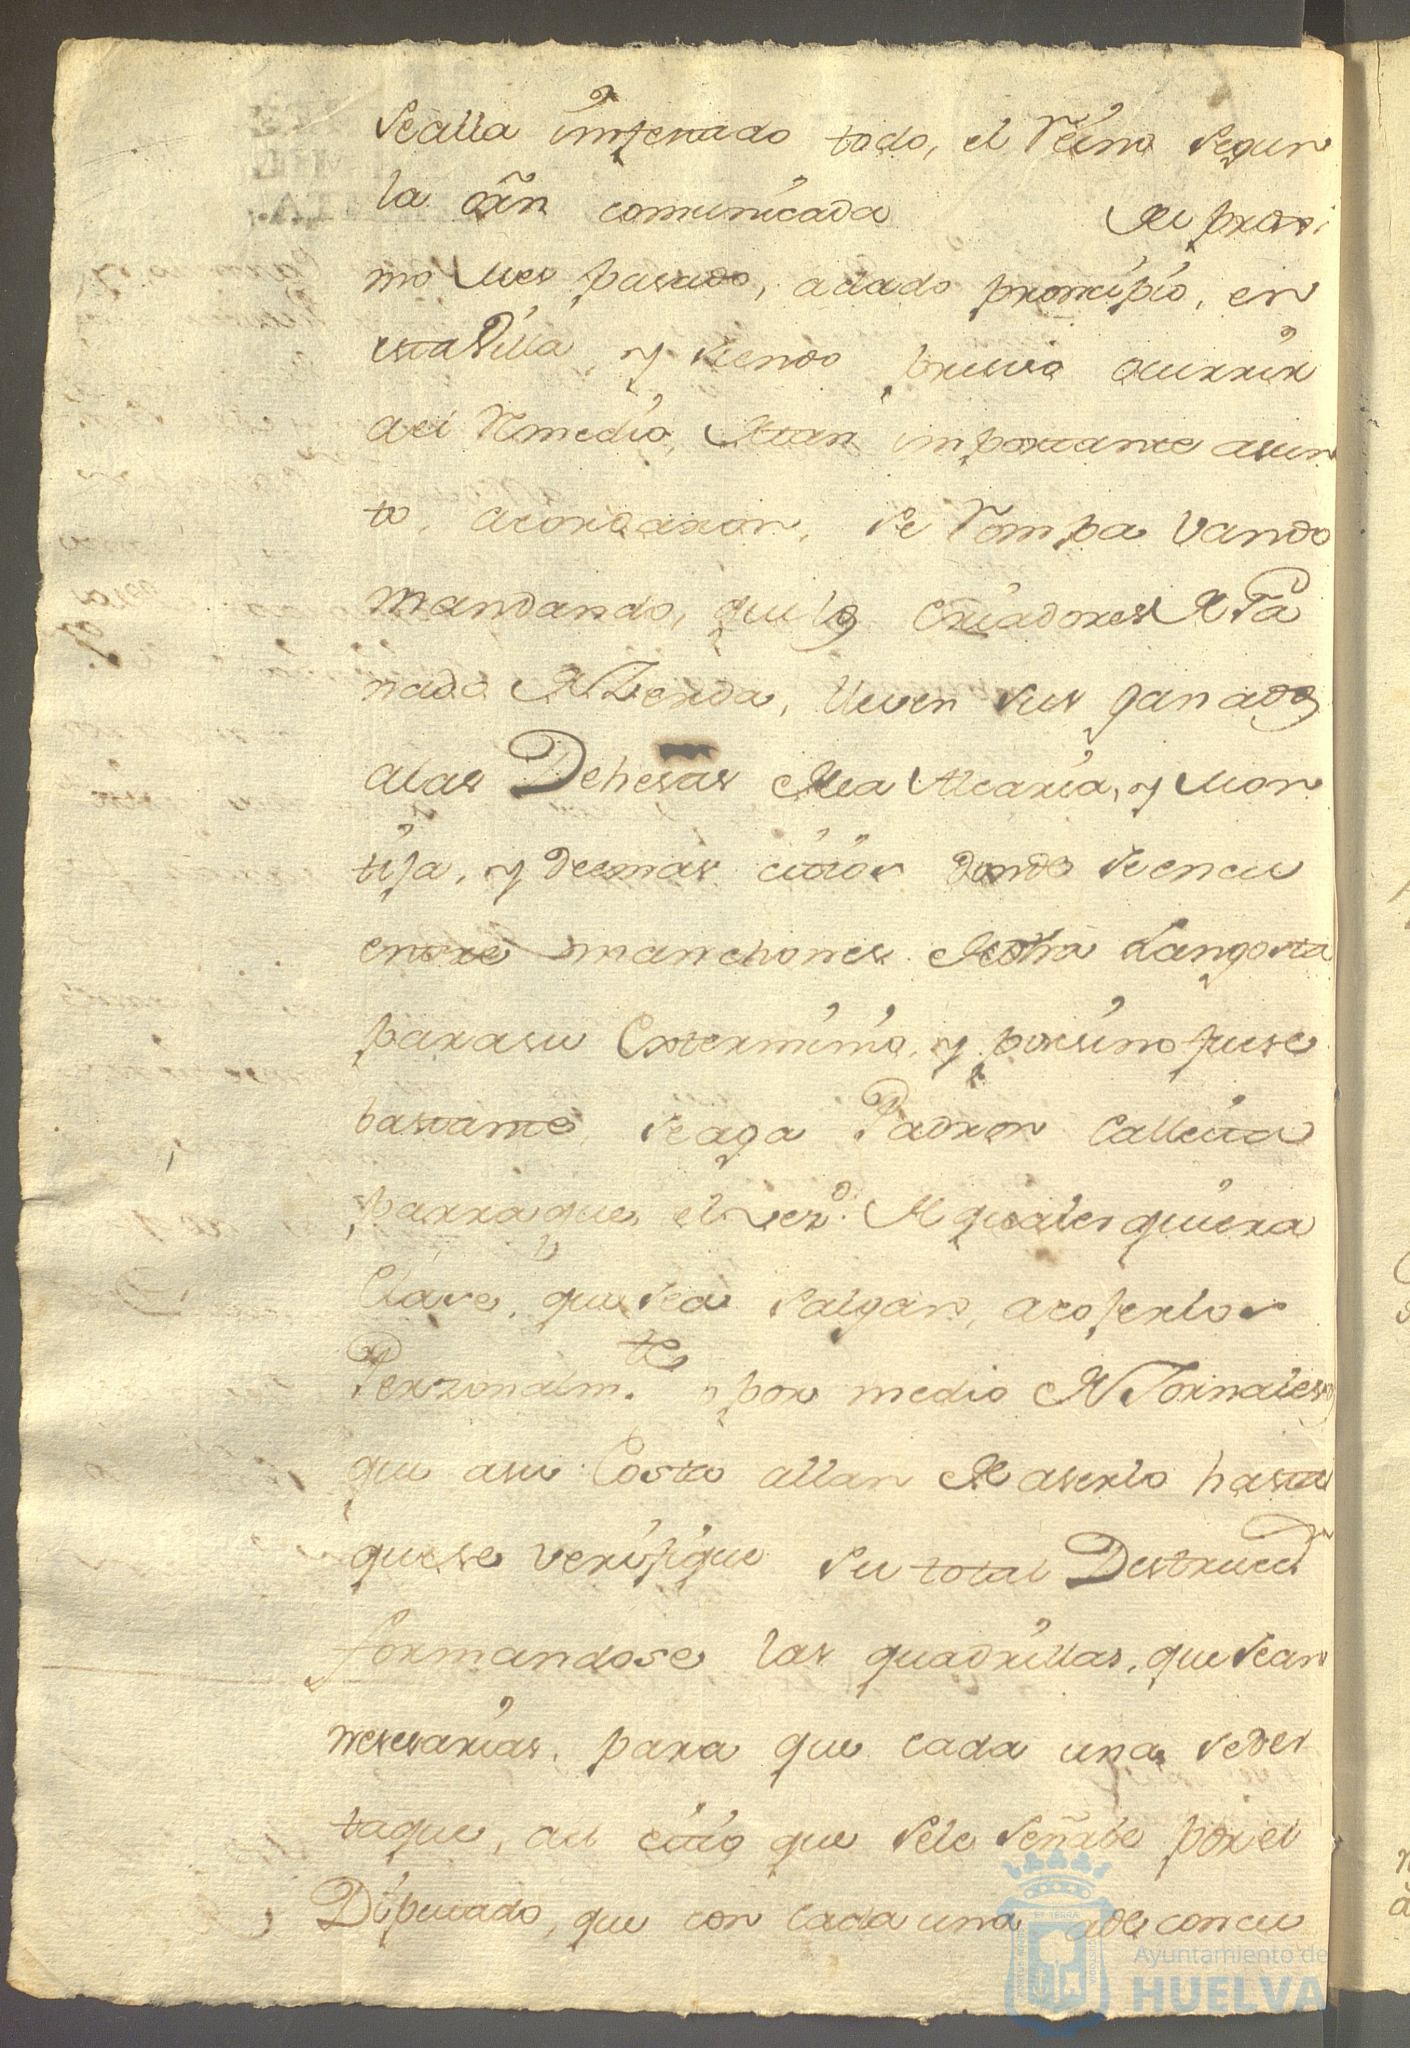 sealla imfestado todo, el Reino segun
la orn comunicada del proxi
mo Mes pasado, adado prinsipio, en
esta Villa, y siendo presiso ocurrir
ael Remedio, de tan importante asun
to, acordaron, se Rompa Vando
mandando, que los Criadores de Ga
nado de Zerda, lleven sus ganados
alas Dehesas de la Alcaria, y Mon
tija, y demas citios donde se encu
entre manchones de otra Langosta
para su Exterminio, y por sino fuese
bastante, seaga Padron Callecita
parra que, el Vezo. de qualesquiera
Clase, que sea salgan, acojerlos
Perzonalmte. y por medio de Jornales
que asu Costa allan de aserlo hasta
quese verifique su total Destrucn.
formandose las quadrillas, que sean
nesesarias, para que cada una sedes
taque, al citio que sele señale por el
Diputado, que con cada una ade concu
Ayuntamiento de
HUELVA